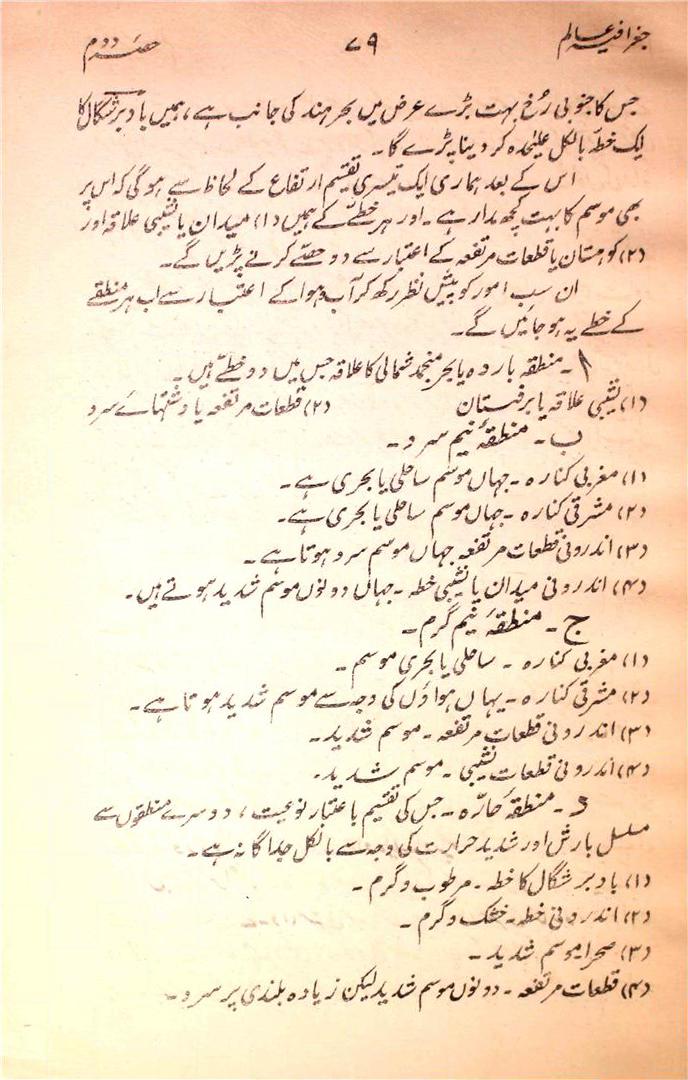 جغرافیہ عالم ۷۹ حصہ دوم
جس کا جنوبی رُخ بہت بڑے عرض میں بحر ہند کی جانب ہے، ہمیں بادبرشگال کا
ایک خطہ بالکل علیٰحدہ کر دینا پڑے گا۔
اس کے بعد ہماری ایک تیسری تقسیم ارتفاع کے لحاظ سے ہو گی کہ اس پر
بھی موسم کا بہت کچھ مدار ہے۔ اور ہر خطے کے ہمیں (۱) میدان یا نشیبی علاقہ اور
(۲) کوہستان یا قطعات مرتفعہ کے اعتبار سے دو حصے کرنے پڑیں گے۔
ان سب امور کو پیش نظر رکھ کر آب و ہوا کے اعتبار سے اب ہر منطقے
کے خطے یہ ہو جائیں گے۔
ا۔ منطقہ باردہ یا بحر منجمد شمالی کا علاقہ جس میں دو خطے ہیں۔
(۱) نشیبی علاقہ یا برفستان (۲) قطعات مرتفعہ یا دشتہائے سرد
ب۔ منطقۂ نیم سرد۔
(۱) مغربی کنارہ۔ جہاں موسم ساحلی یا بحری ہے۔
(۲) مشرقی کنارہ۔ جہاں موسم ساحلی یا بحری ہے۔
(۳) اندرونی قطعات مرتفعہ جہاں موسم سرد ہوتا ہے۔
(۴) اندرونی میدان یا نشیبی خطہ۔ جہاں دونوں موسم شدید ہوتے ہیں۔
ج۔ منطقۂ نیم گرم۔
(۱) مغربی کنارہ۔ ساحلی یا بحری موسم۔
(۲) مشرقی کنارہ۔ یہاں ہواؤں کی وجہ سے موسم شدید ہوتا ہے۔
(۳) اندرونی قطعات مرتفعہ۔ موسم شدید۔
(۴) اندرونی قطعات نشیبی۔ موسم شدید۔
د۔ منطقۂ حارّہ۔ جس کی تقسیم باعتبار نوعیت، دوسرے منطقوں سے
مسلسل بارش اور شدید حرارت کی وجہ سے بالکل جداگانہ ہے۔
(۱) بادبرشگال کا خطہ۔ مرطوب و گرم۔
(۲) اندرونی خطہ۔ خشک و گرم۔
(۳) صحرا موسم شدید۔
(۴) قطعات مرتفعہ۔ دونوں موسم شدید لیکن زیادہ بلندی پر سرد۔